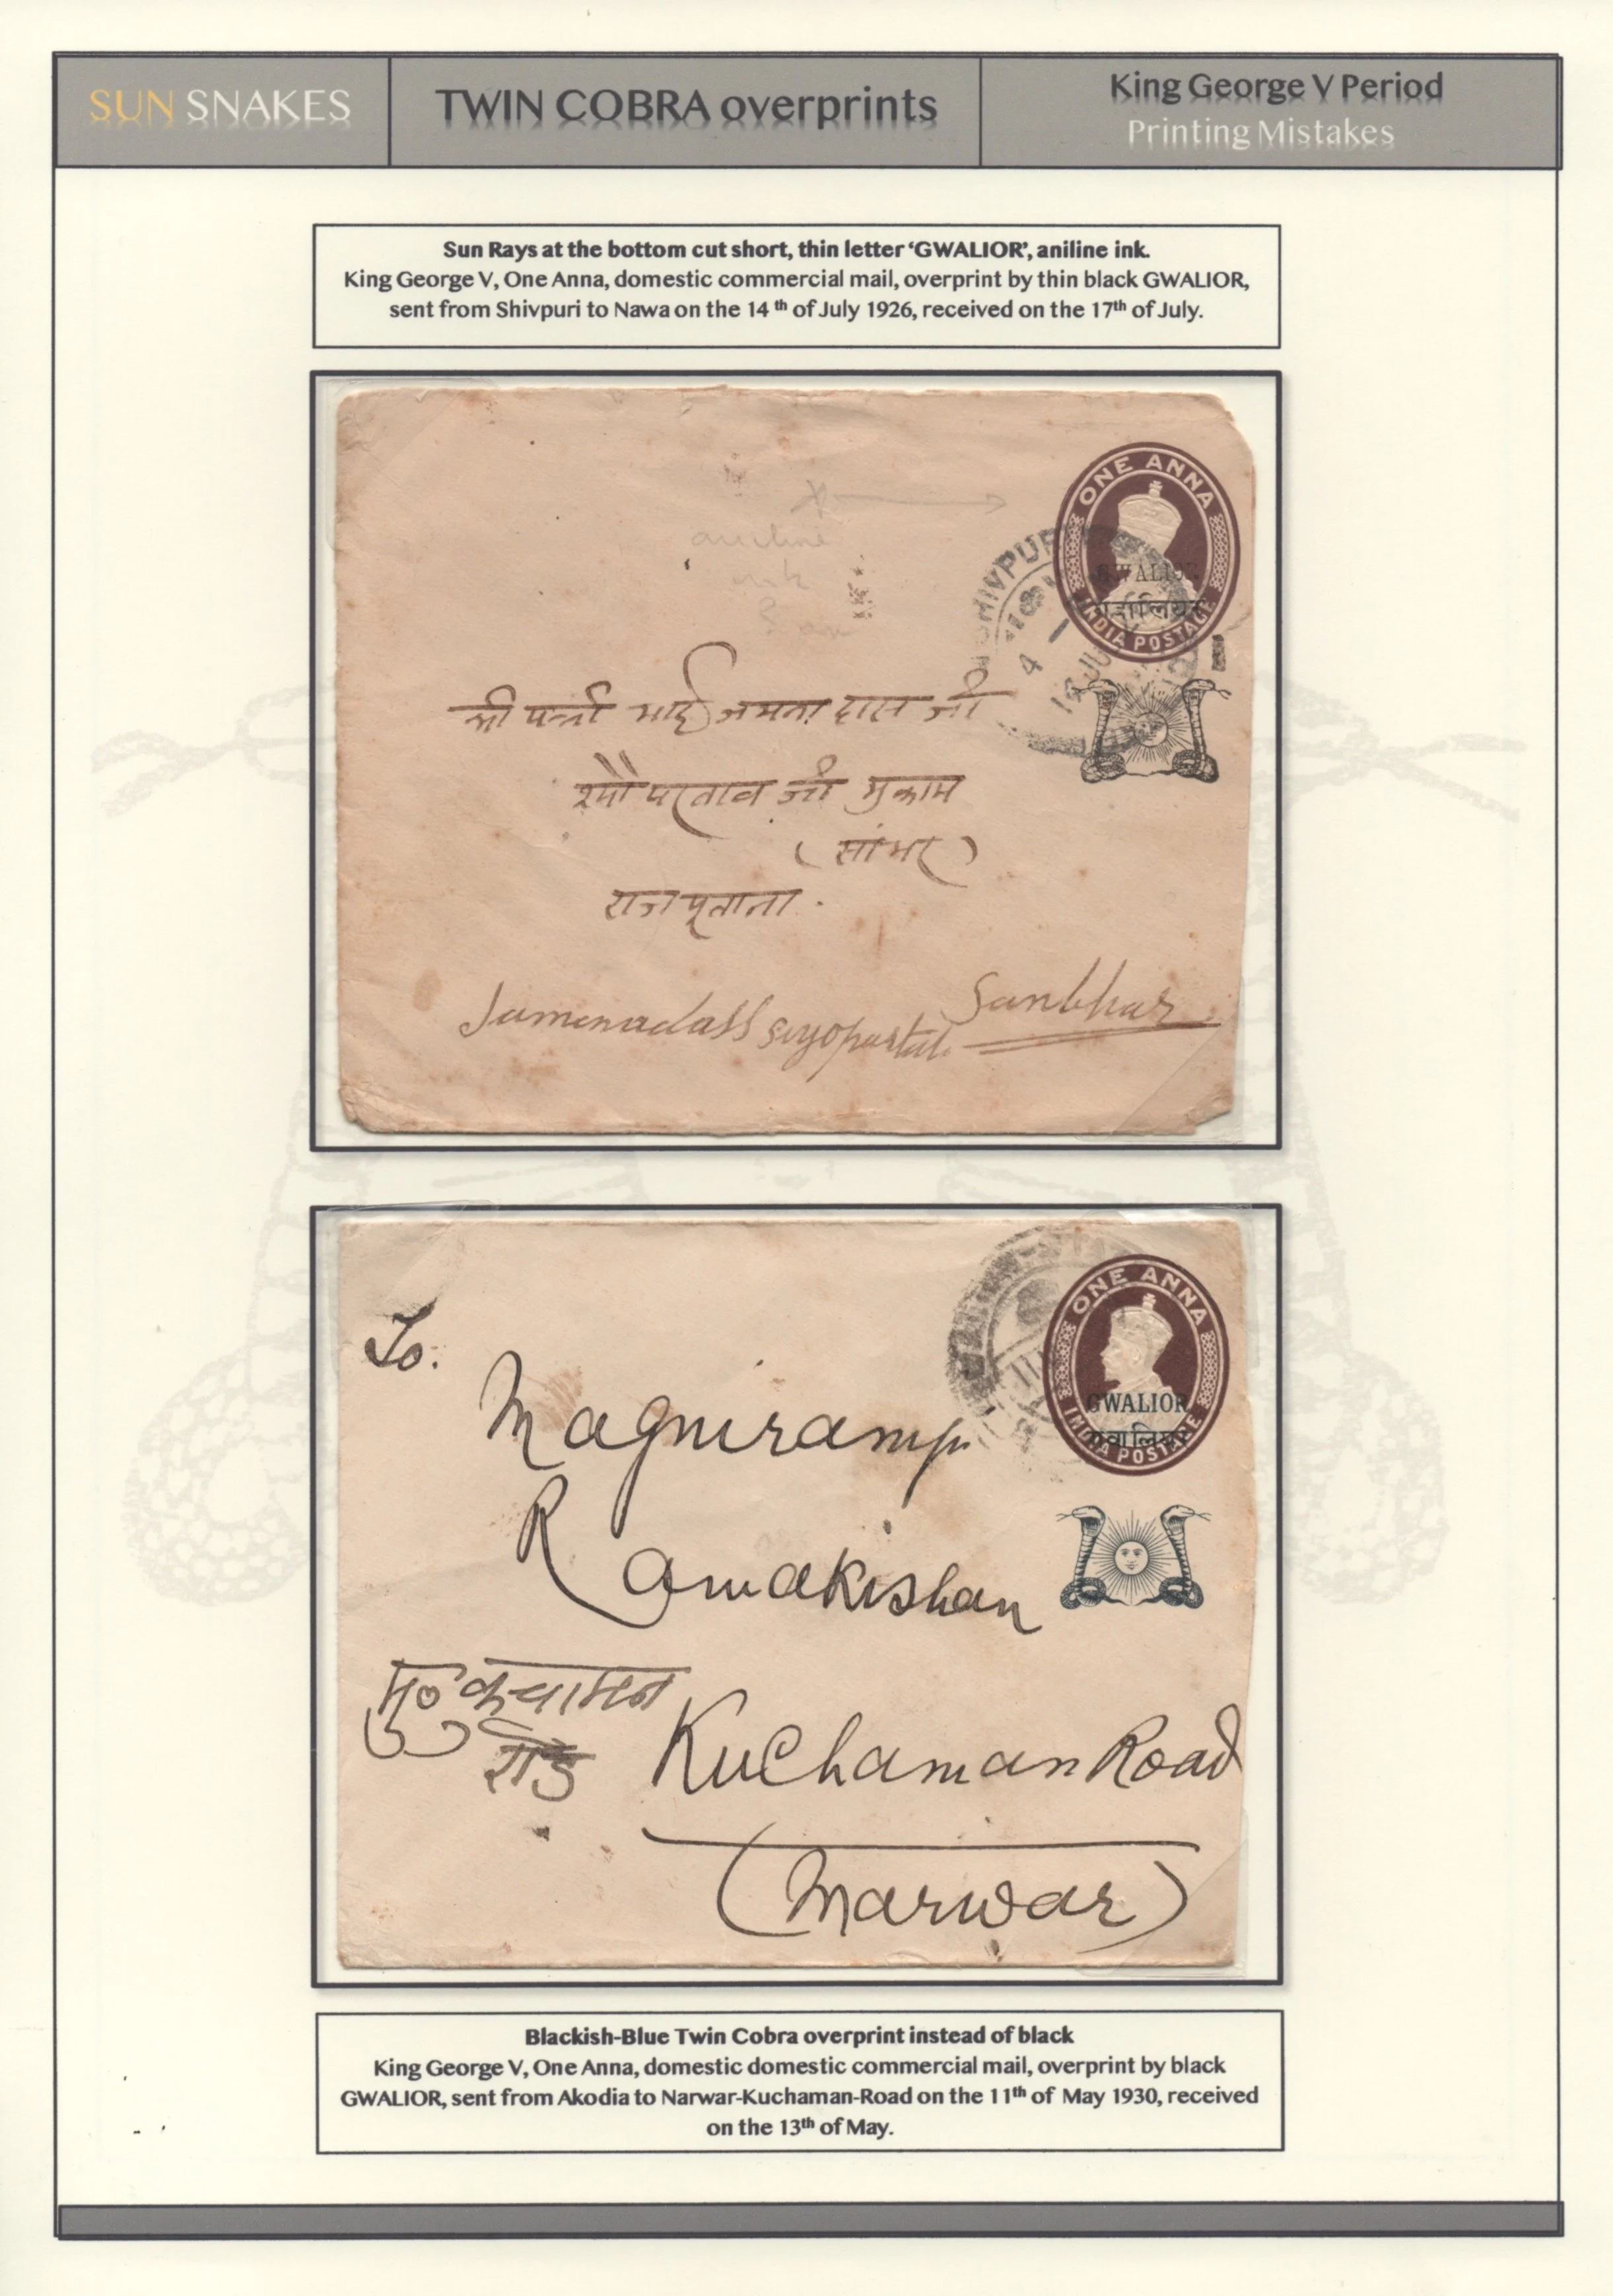 SUN SNAKES
TWIN COBRA overprints
King George V Period
Printing Mistakes
Sun Rays at the bottom cut short, thin letter ‘GWALIOR’, aniline ink.
King George V, One Anna, domestic commercial mail, overprint by thin black GWALIOR,
sent from Shivpuri to Nawa on the 14 th of July 1926, received on the 17th of July.
ONE ANNA
GWALIOR
INDIA POSTAGE
SHIVPUR
aniline
ink
भाई जमना दास जी
परताव जी मुकाम
(सांभर)
राजपूताना.
Jamenadass
Sanbhar
ONE ANNA
GWALIOR
ग्वालियर
INDIA POSTAGE
To.
Magniramji
Ramakishan
मु० कुचामन
रोड
Kuchaman Road
(Marwar)
Blackish-Blue Twin Cobra overprint instead of black
King George V, One Anna, domestic domestic commercial mail, overprint by black
GWALIOR, sent from Akodia to Narwar-Kuchaman-Road on the 11th of May 1930, received
on the 13th of May.